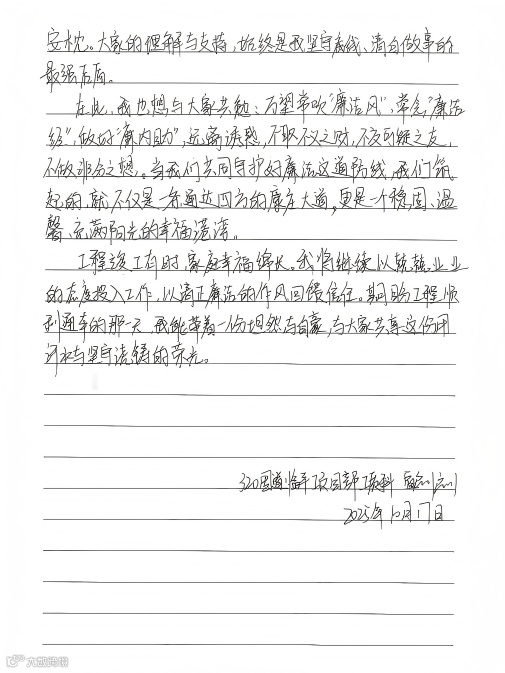 安枕。大家的理解与支持,始终是我坚守底线、清白做事的
最强后盾。
在此,我也想与大家共勉:万望常吹“廉洁风”、常念“廉洁
经”,做好“廉内助”,远离诱惑,不取不义之财,不交可疑之友,
不做非分之想。当我们共同守护好廉洁这道防线,我们筑
起的,就不仅是一条通达四方的康庄大道,更是一个稳固、温
馨、充满阳光的幸福港湾。
工程竣工有时,家庭幸福绵长。我将继续以兢兢业业
的态度投入工作,以清正廉洁的作风回馈信任。期盼工程顺
利通车的那一天,我能带着一份坦然与自豪,与大家共享这份用
汗水与坚守浇铸的荣光。
320国道临平项目部
2025年10月17日